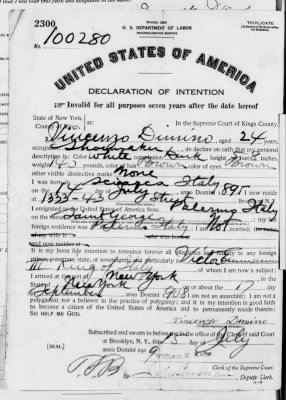 TRIPLICATE
2300
U. S. DEPARTMENT OF LABOR
NATURALIZATION SERVICE
No. 100280
UNITED STATES OF AMERICA
DECLARATION OF INTENTION
Invalid for all purposes seven years after the date hereof
State of New York,
County of Kings, ss:
In the Supreme Court of Kings County.
I, Vincenzo Dimino, aged 24 years,
occupation Shoemaker, do declare on oath that my personal
description is: Color White, complexion Dark, height feet inches,
weight 145 pounds, color of hair Brown, color of eyes Brown
other visible distinctive marks None
I was born in Italy
anno Domini 1891; I now reside
at 1353 43
I emigrated to the United States of America from Italy
on the vessel Saint George; my last
foreign residence was Italy
and now resides at
It is my bona fide intention to renounce forever all allegiance and fidelity to any foreign
prince, potentate, state, or sovereignty, and particularly to Victor Emmanuel
III King of Italy, of whom I am now a subject;
I arrived at the port of New York
New York on or about the 17 day
anno Domini 1908; I am not an anarchist; I am not a
polygamist nor a believer in the practice of polygamy; and it is my intention in good faith
to become a citizen of the United States of America and to permanently reside therein:
SO HELP ME GOD.
Vincenzo Dimino
Subscribed and sworn to before me in the office of the Clerk of said Court
at Brooklyn, N. Y., this 15 day of July
anno Domini 19
[SEAL]
William E. Kelly
Clerk of the Supreme Court.
Deputy Clerk.